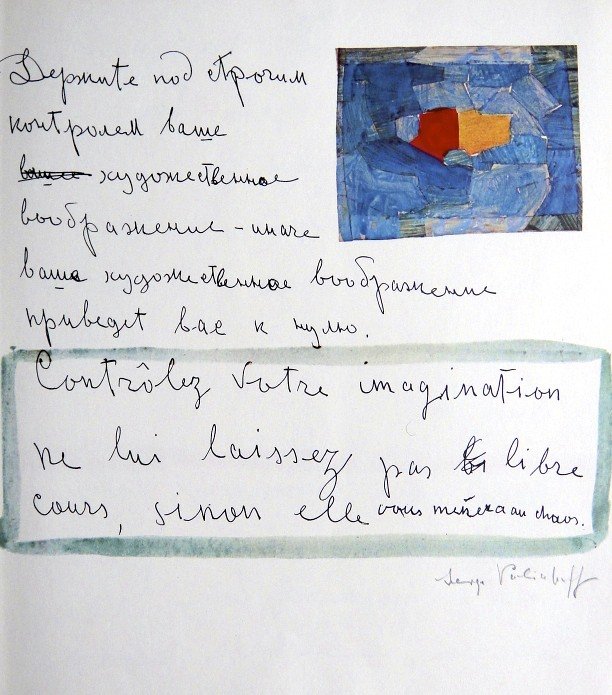 Держите под строгим
контролем ваше
ваше художественное
воображение – иначе
ваше художественное воображение
приведет вас к нулю.
Contrôlez votre imagination
ne lui laissez pas libre
cours, sinon elle vous mènera au chaos.
Serge Poliakoff